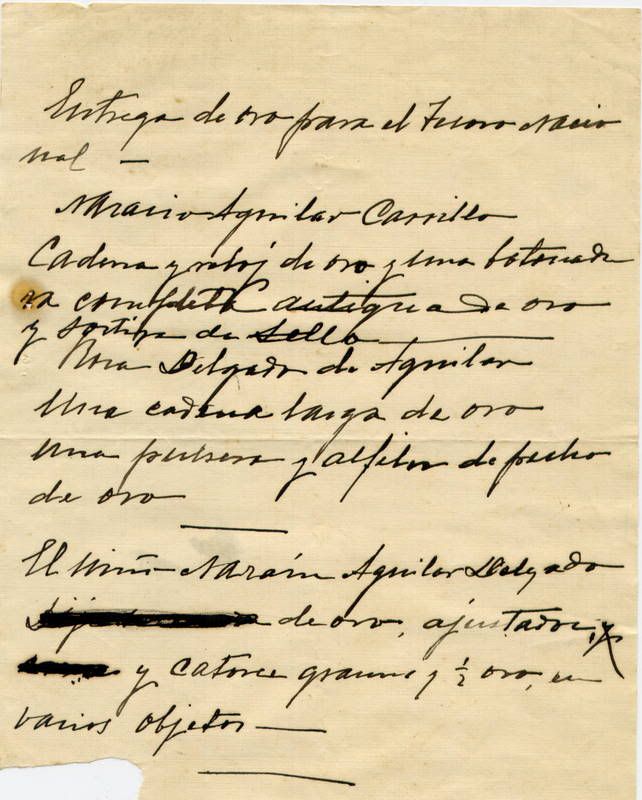 Entrega de oro para el Tesoro Nacio
nal —
Aguilar Carrillo
Cadena y reloj de oro y una botonadu
ra completa antigua de oro
y sortija de sello
Delgado de Aguilar
Una cadena larga de oro
una pulsera y alfiler de pecho
de oro
El niño Aguilar Delgado
de oro, ajustador, y
y catorce gramos y ½ oro, en
varios objetos —